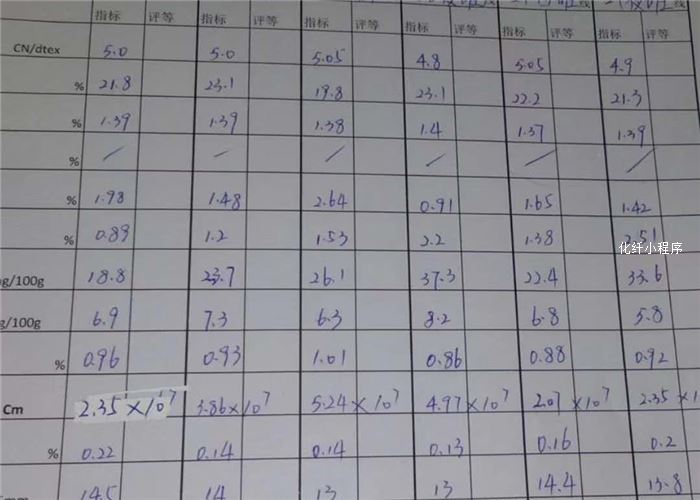 指标 评等 指标 评等 指标 评等 指标 评等 指标 评等 指标 评等
CN/dtex 5.0 5.0 5.05 4.8 5.05 4.9
% 21.8 23.1 19.8 23.1 22.2 21.3
% 1.39 1.39 1.38 1.4 1.37 1.39
% / / / / / /
% 1.98 1.48 2.64 0.91 1.65 1.42
% 0.89 1.2 1.53 2.2 1.38 2.51
化纤小程序
g/100g 18.8 23.7 26.1 37.3 22.4 33.6
g/100g 6.9 7.3 6.3 8.2 6.8 5.8
% 0.96 0.93 1.01 0.86 0.88 0.92
Cm 2.35×10⁷ 3.86×10⁷ 5.24×10⁷ 4.97×10⁷ 2.07×10⁷ 2.35×1
% 0.22 0.14 0.14 0.13 0.16 0.2
14.5 14 13 13 14.4 13.8